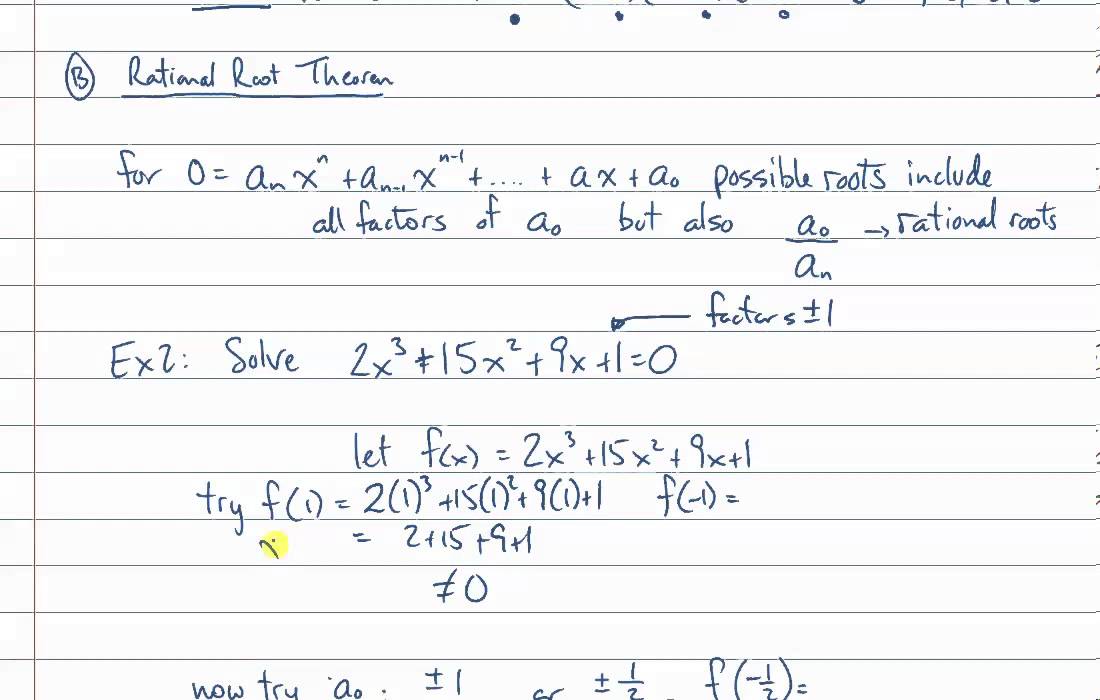 Ⓑ Rational Root Theorem
for 0 = aₙxⁿ + aₙ₋₁xⁿ⁻¹ + .... + ax + a₀ possible roots include
all factors of a₀ but also a₀/aₙ → rational roots
factors ±1
Ex2: Solve 2x³ + 15x² + 9x + 1 = 0
let f(x) = 2x³ + 15x² + 9x + 1
try f(1) = 2(1)³ + 15(1)² + 9(1) + 1 f(-1) =
= 2 + 15 + 9 + 1
≠ 0
now try a₀ : ±1 or ± 1/2 f(-1/2) =